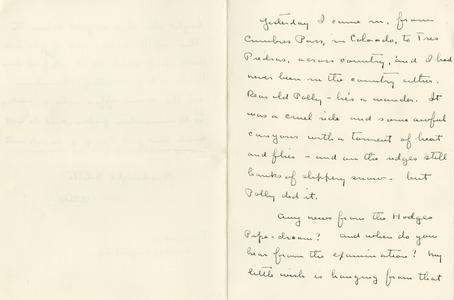 Yesterday I came in, from
Cumbres Pass, in Colorado, to Tres
Piedras, across country, and I had
never been in the country either.
Dear old Polly - he's a wonder. It
was a cruel ride and some awful
canyons with a torment of heat
and flies - and on the ridges still
banks of slippery snow - but
Polly did it.
Any news from the Hodges
Pipe-dream? And when do you
hear from the examination? My
little wish is hanging from that